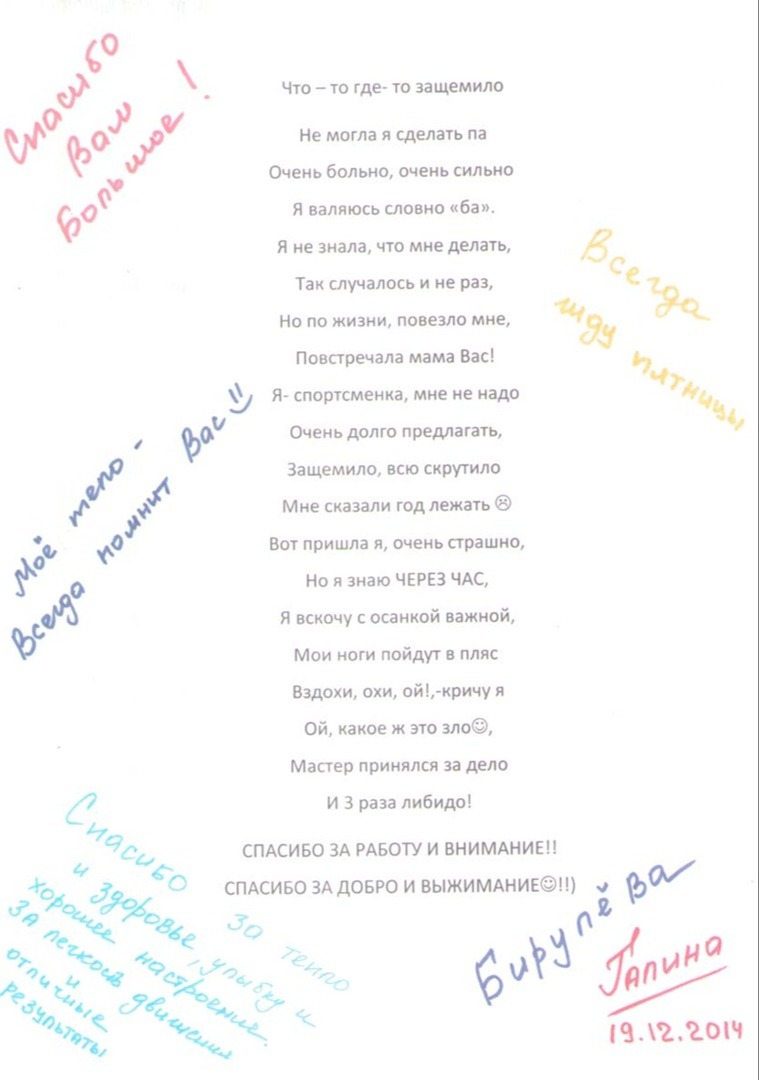 Спасибо
Вам
Большое!
Что – то где- то защемило
Не могла я сделать па
Очень больно, очень сильно
Я валяюсь словно «ба».
Я не знала, что мне делать,
Так случалось и не раз,
Но по жизни, повезло мне,
Повстречала мама Вас!
Я- спортсменка, мне не надо
Очень долго предлагать,
Защемило, всю скрутило
Мне сказали год лежать ☹
Вот пришла я, очень страшно,
Но я знаю ЧЕРЕЗ ЧАС,
Я вскочу с осанкой важной,
Мои ноги пойдут в пляс
Вздохи, охи, ой!,-кричу я
Ой, какое ж это зло☺,
Мастер принялся за дело
И 3 раза либидо!
СПАСИБО ЗА РАБОТУ И ВНИМАНИЕ!!
СПАСИБО ЗА ДОБРО И ВЫЖИМАНИЕ☺!!)
Всегда
жду пятницы
Моё тело -
Всегда помнит Вас!!
Спасибо за тепло
и здоровье, улыбку и
хорошее настроение.
За легкость движения
и
отличные
результаты
Бирулёва
Галина
19.12.2014